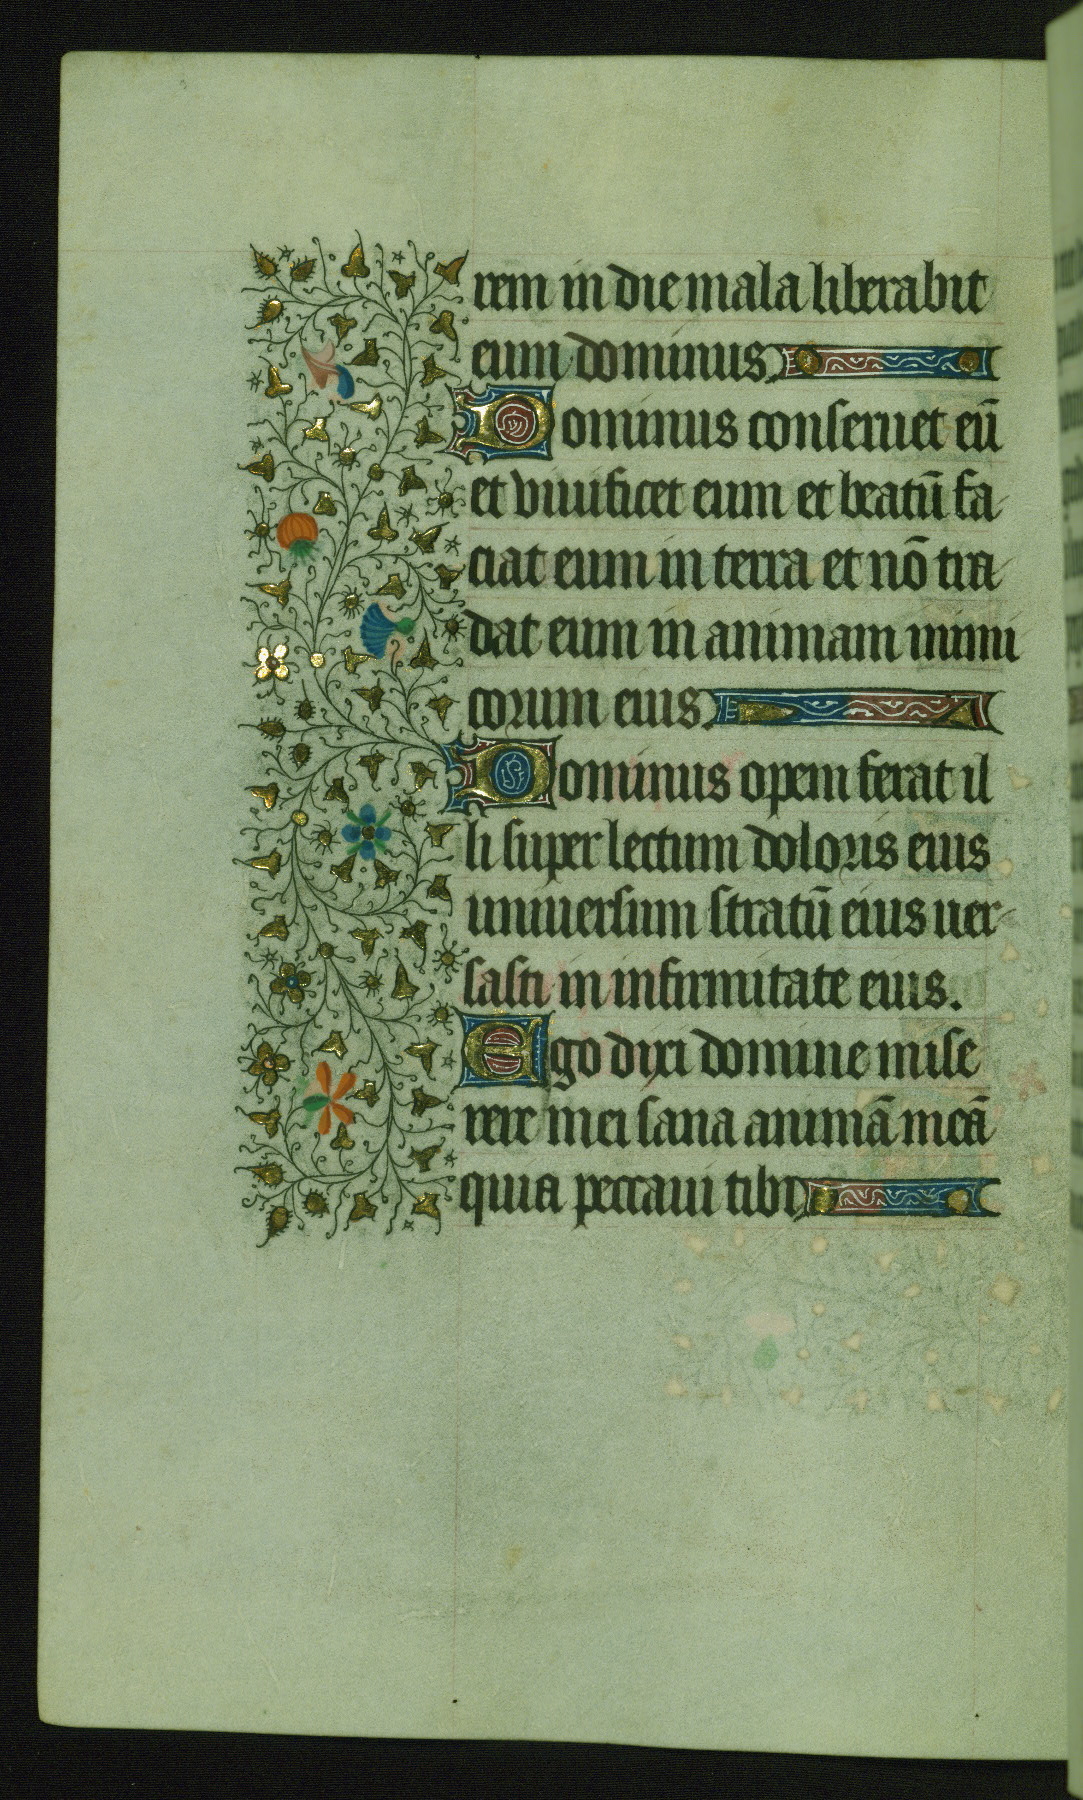 rem in die mala liberabit
eum dominus
Dominus conseruet eū
et viuificet eum et beatū fa
ciat eum in terra et nō tra
dat eum in animam inimi
corum eius.
Dominus opem ferat il
li super lectum doloris eius
uniuersum stratū eius uer
sasti in infirmitate eius.
Ego dixi domine mise
rere mei sana animā meā
quia peccaui tibi